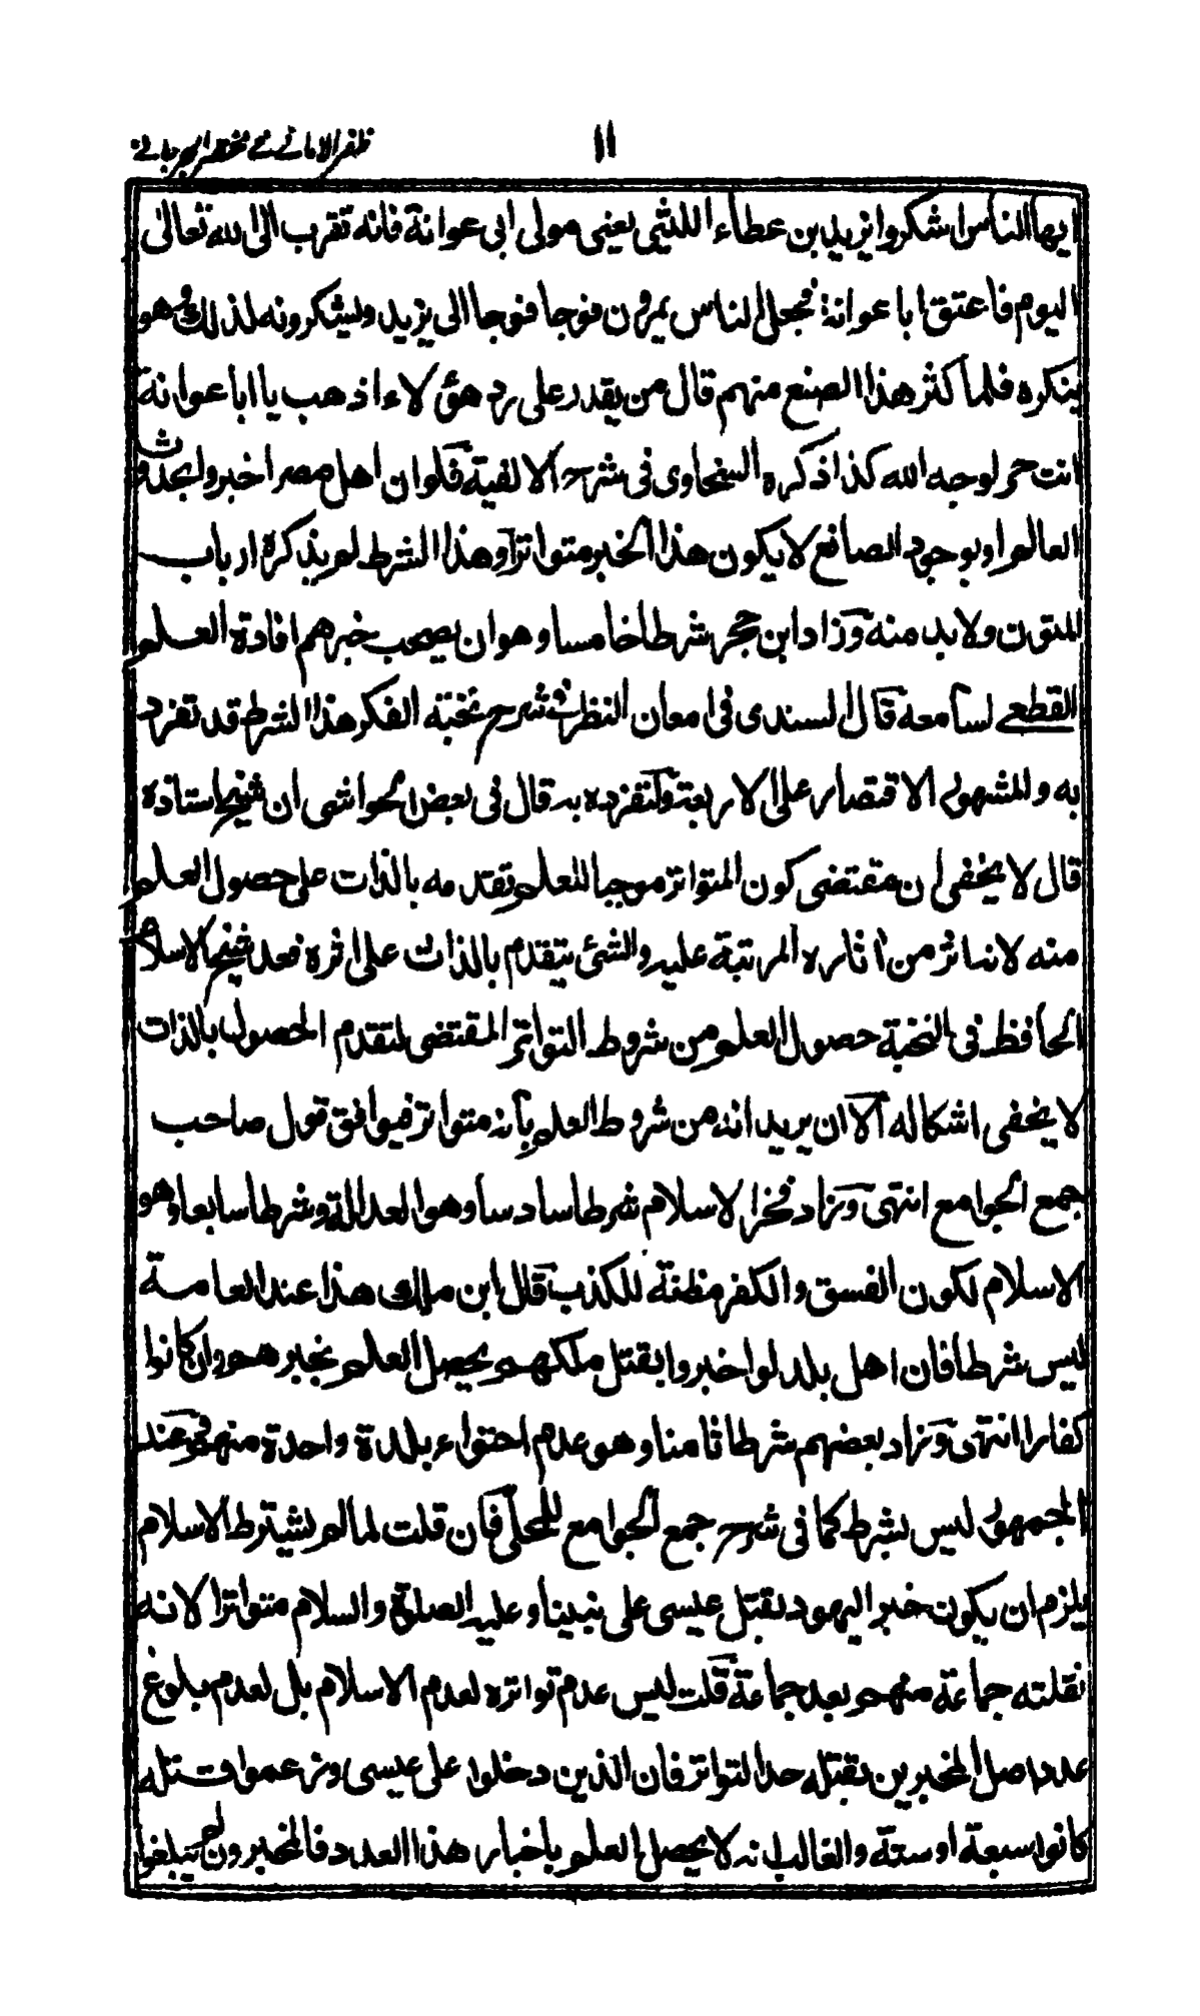 ظفر الامانی فی مختصر الجرجانی
١١
ایها الناس اشکروا یزید بن عطاء اللیثی یعنی مولی ابی عوانة فانه تقرب الی الله تعالی
الیوم فاعتق ابا عوانة فجعل الناس یمرون فوجا فوجا الی یزید ویشکرونه لذلک وهو
ینکره فلما کثر هذا الصنع منهم قال من یقدر علی رد هؤلاء اذهب یا ابا عوانة
انت حر لوجه الله کذا ذکره السخاوی فی شرح الالفیة فلو ان اهل مصر اخبروا بحدوث
العالم او بوجود الصانع لا یکون هذا الخبر متواترا وهذا الشرط لم یذکره ارباب
المتون ولا بد منه وزاد ابن حجر شرطا خامسا وهو ان یصحب خبرهم افادة العلم
القطعی لسامعه قال السندی فی امعان النظر فی شرح نخبة الفکر هذا الشرط قد تفرد
به والمشهور الاقتصار علی الاربعة ولتفرده به قال فی بعض الحواشی ان شیخ استاذه
قال لا یخفی ان مقتضی کون المتواتر موجبا للعلم تقدمه بالذات علی حصول العلم
منه لانه اثر من آثاره المرتبة علیه والشئ یتقدم بالذات علی اثره فعد شیخ الاسلام
الحافظ فی النخبة حصول العلم من شروط التواتر المقتضی لتقدم الحصول بالذات
لا یخفی اشکاله الا ان یرید انه من شروط العلم بانه متواتر فیوافق قول صاحب
جمع الجوامع انتهی وزاد فخر الاسلام شرطا سادسا وهو العدالة وشرطا سابعا وهو
الاسلام لکون الفسق والکفر مظنة للکذب قال ابن مالک هذا عند العامة
لیس شرطا فان اهل بلد لو اخبروا بقتل ملکهم یحصل العلم بخبرهم وان کانوا
کفارا انتهی وزاد بعضهم شرطا ثامنا وهو عدم احتواء بلدة واحدة منهم وعند
الجمهور لیس بشرط کما فی شرح جمع الجوامع للمحلی فان قلت لما لم یشترط الاسلام
یلزم ان یکون خبر الیهود بقتل عیسی علی نبینا وعلیه الصلوة والسلام متواترا لانه
نقلته جماعة منهم بعد جماعة قلت لیس عدم تواتره لعدم الاسلام بل لعدم بلوغ
عدد اصل المخبرین بقتله حد التواتر فان الذین دخلوا علی عیسی وزعموا قتله
کانوا سبعة او ستة والغالب انه لا یحصل العلم باخبار هذا العدد فالمخبرون لم یبلغوا